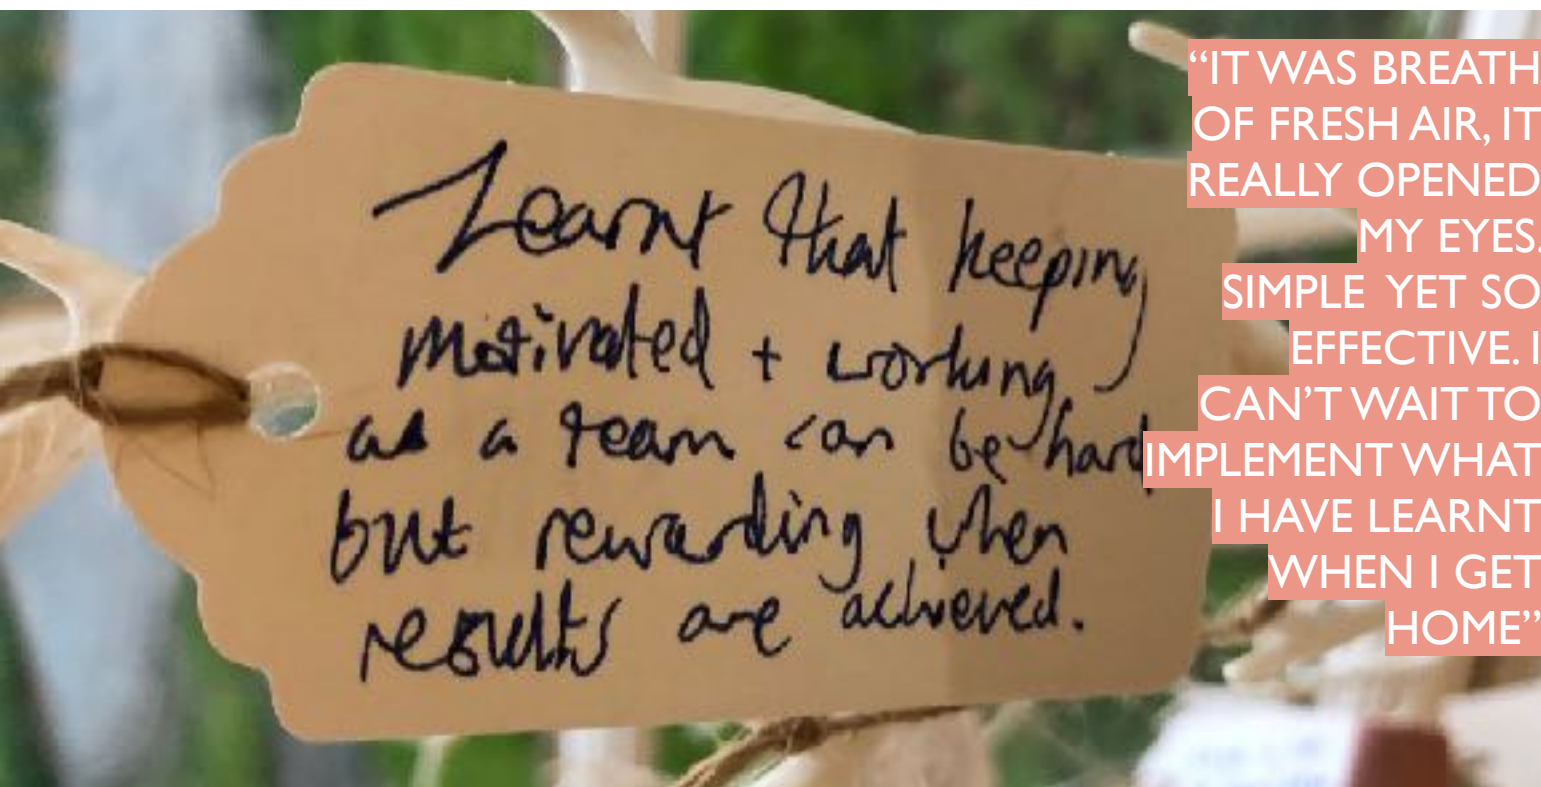 Learnt that keeping
motivated + working
as a team can be hard
but rewarding when
results are achieved.
“IT WAS BREATH
OF FRESH AIR, IT
REALLY OPENED
MY EYES.
SIMPLE YET SO
EFFECTIVE. I
CAN’T WAIT TO
IMPLEMENT WHAT
I HAVE LEARNT
WHEN I GET
HOME”